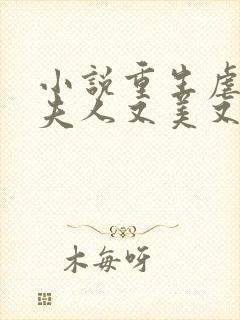 小説重生虐
夫人又美又
木每呀